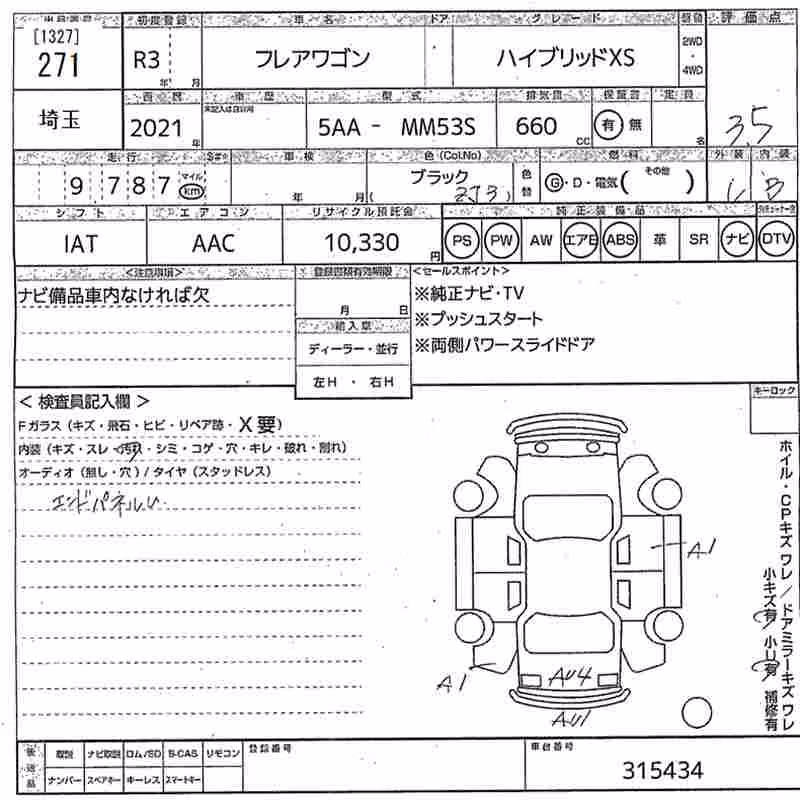 出品番号 初度登録 車名 ドア グレード 駆動 評価点
[1327]
271 R3 年 月 フレアワゴン ハイブリッドXS 2WD・4WD
3.5
埼玉 西暦 車歴 型式 排気量 保証書 定員
未記入は自家用
2021年 5AA - MM53S 660 cc 有 無 名
走行 車検 色(Col.No) 燃料 外装 内装
9 787 マイル km 年 月 ブラック ( ZJ3 ) 色替 G・D・電気( その他 ) B
シフト エアコン リサイクル預託金 純正装備品
IAT AAC 10,330円 PS PW AW エアB ABS 革 SR ナビ DTV
<注意事項> 登録書類有効期限 <セールスポイント>
ナビ備品車内なければ欠 月 日 ※純正ナビ・TV
輸入車 ※プッシュスタート
ディーラー・並行 ※両側パワースライドドア
左H ・ 右H
キーロック
< 検査員記入欄 >
Fガラス(キズ・飛石・ヒビ・リペア跡・X要)
内装(キズ・スレ・汚れ・シミ・コゲ・穴・キレ・破れ・割れ)
オーディオ(無し・穴)/タイヤ(スタッドレス)
エンドパネルU
A1
A1
AU4
AU1
ホイル・CPキズ ワレ/ドアミラーキズ ワレ
小キズ有 小U有 補修有
後送品 取説 ナビ取説 ロム/SD B-CAS リモコン 登録番号 車台番号
ナンバー スペアキー キーレス スマートキー 315434